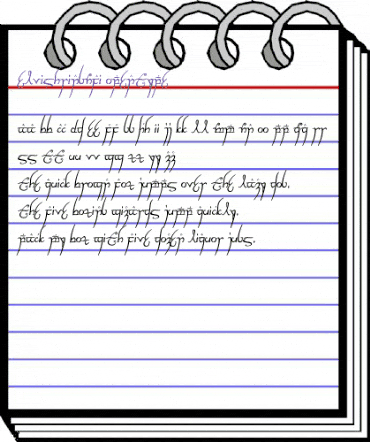 aa bb cc dd ee ff gg hh ii jj kk ll mm nn oo pp qq rr
ss tt uu vv ww xx yy zz
the quick brown fox jumps over the lazy dog.
the five boxing wizards jump quickly.
pack my box with five dozen liquor jugs.